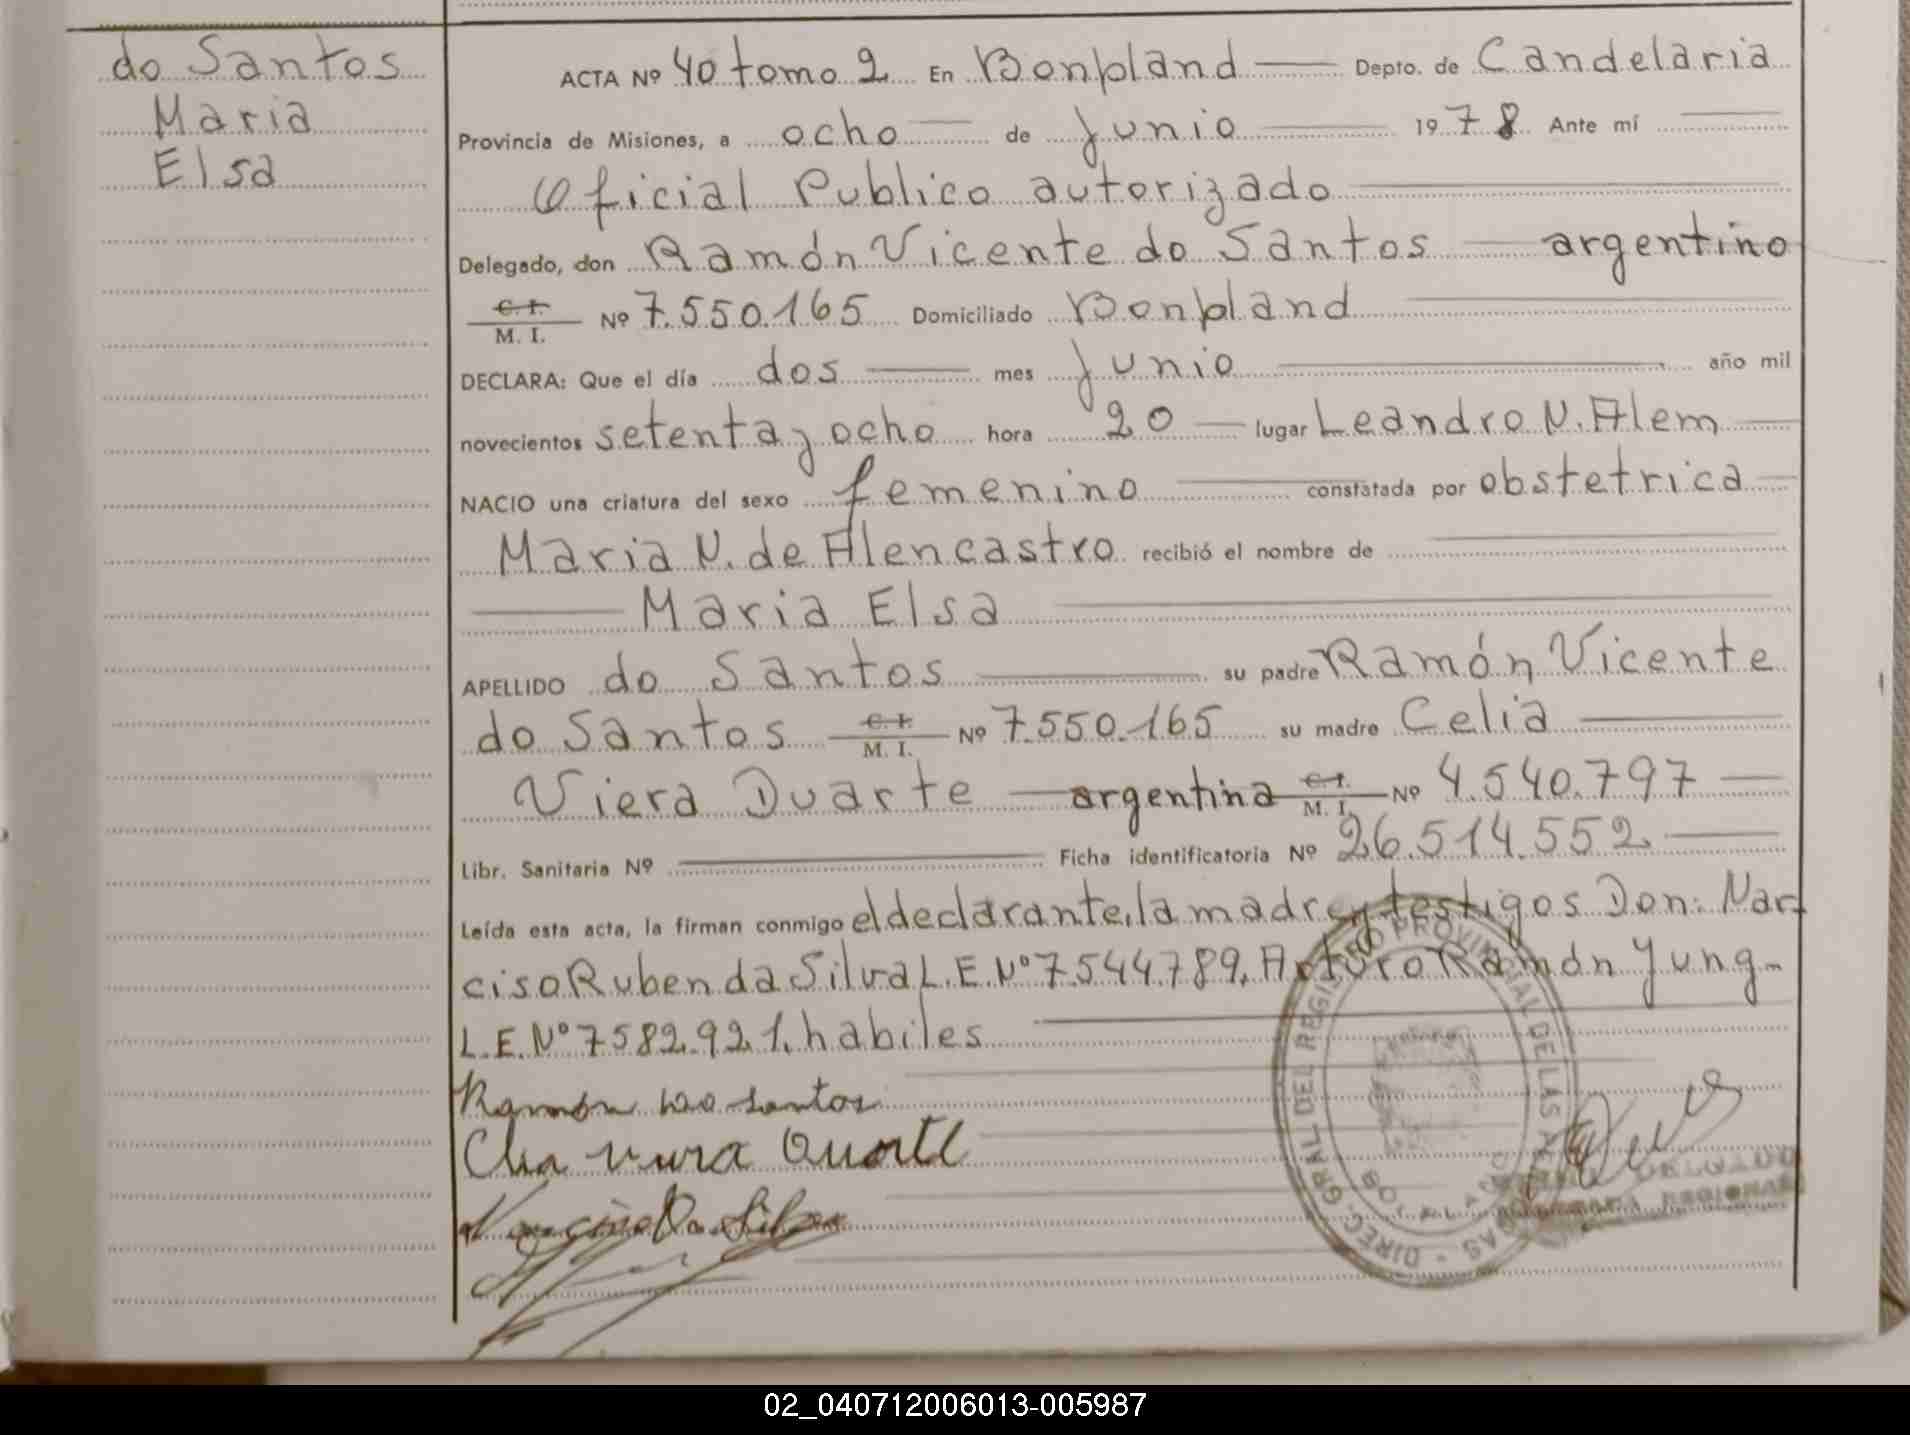 do Santos
Maria
Elsa
ACTA Nº 40 tomo 2 En Bonpland Depto. de Candelaria
Provincia de Misiones, a ocho de Junio 1978 Ante mí
Oficial Publico autorizado
Delegado, don Ramón Vicente do Santos argentino
C. I.
M. I. Nº 7.550.165 Domiciliado Bonpland
DECLARA: Que el día dos mes Junio año mil
novecientos setenta y ocho hora 20 lugar Leandro N. Alem
NACIO una criatura del sexo femenino constatada por obstetrica
Maria N. de Alencastro recibió el nombre de
Maria Elsa
APELLIDO do Santos su padre Ramón Vicente
do Santos C. I. M. I. Nº 7.550.165 su madre Celia
Viera Duarte argentina C. I. M. I. Nº 4.540.797
Libr. Sanitaria Nº Ficha identificatoria Nº 26.514.552
Leída esta acta, la firman conmigo el declarante, la madre y testigos Don: Nar-
ciso Ruben da Silva L.E. Nº 7544789, Arturo Ramón Yung-
L.E. Nº 7582.921, habiles
Ramón do santos
DIREC. GRAL. DEL REGISTRO PROVINCIAL DE LAS
REGIONAL
02_040712006013-005987